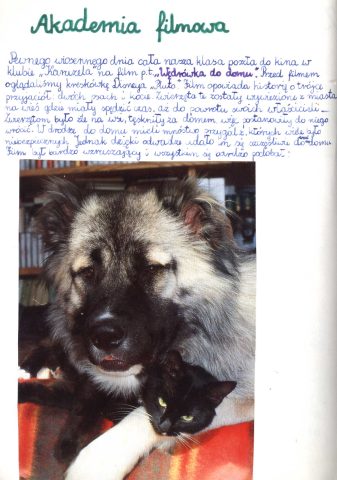 Akademia filmowa
Pewnego wiosennego dnia cała nasza klasa poszła do kina w
klubie „Karuzela" na film p.t. „Wędrówka do domu". Przed filmem
oglądaliśmy kreskówkę Disneya „Pluto". Film opowiada historię o trójce
przyjaciół dwóch psach i kocie. Zwierzęta te zostały wywiezione z miasta
na wieś gdzie miały spędzić czas, aż do powrotu swoich właścicieli.
Zwierzętom było źle na wsi, tęskniły za domem, więc postanowiły do niego
wrócić. W drodze do domu mieli mnóstwo przygód, z których wiele było
niebezpiecznych. Jednak dzięki odwadze udało im się szczęśliwie do domu.
Film był bardzo wzruszający i wszystkim się bardzo podobał.